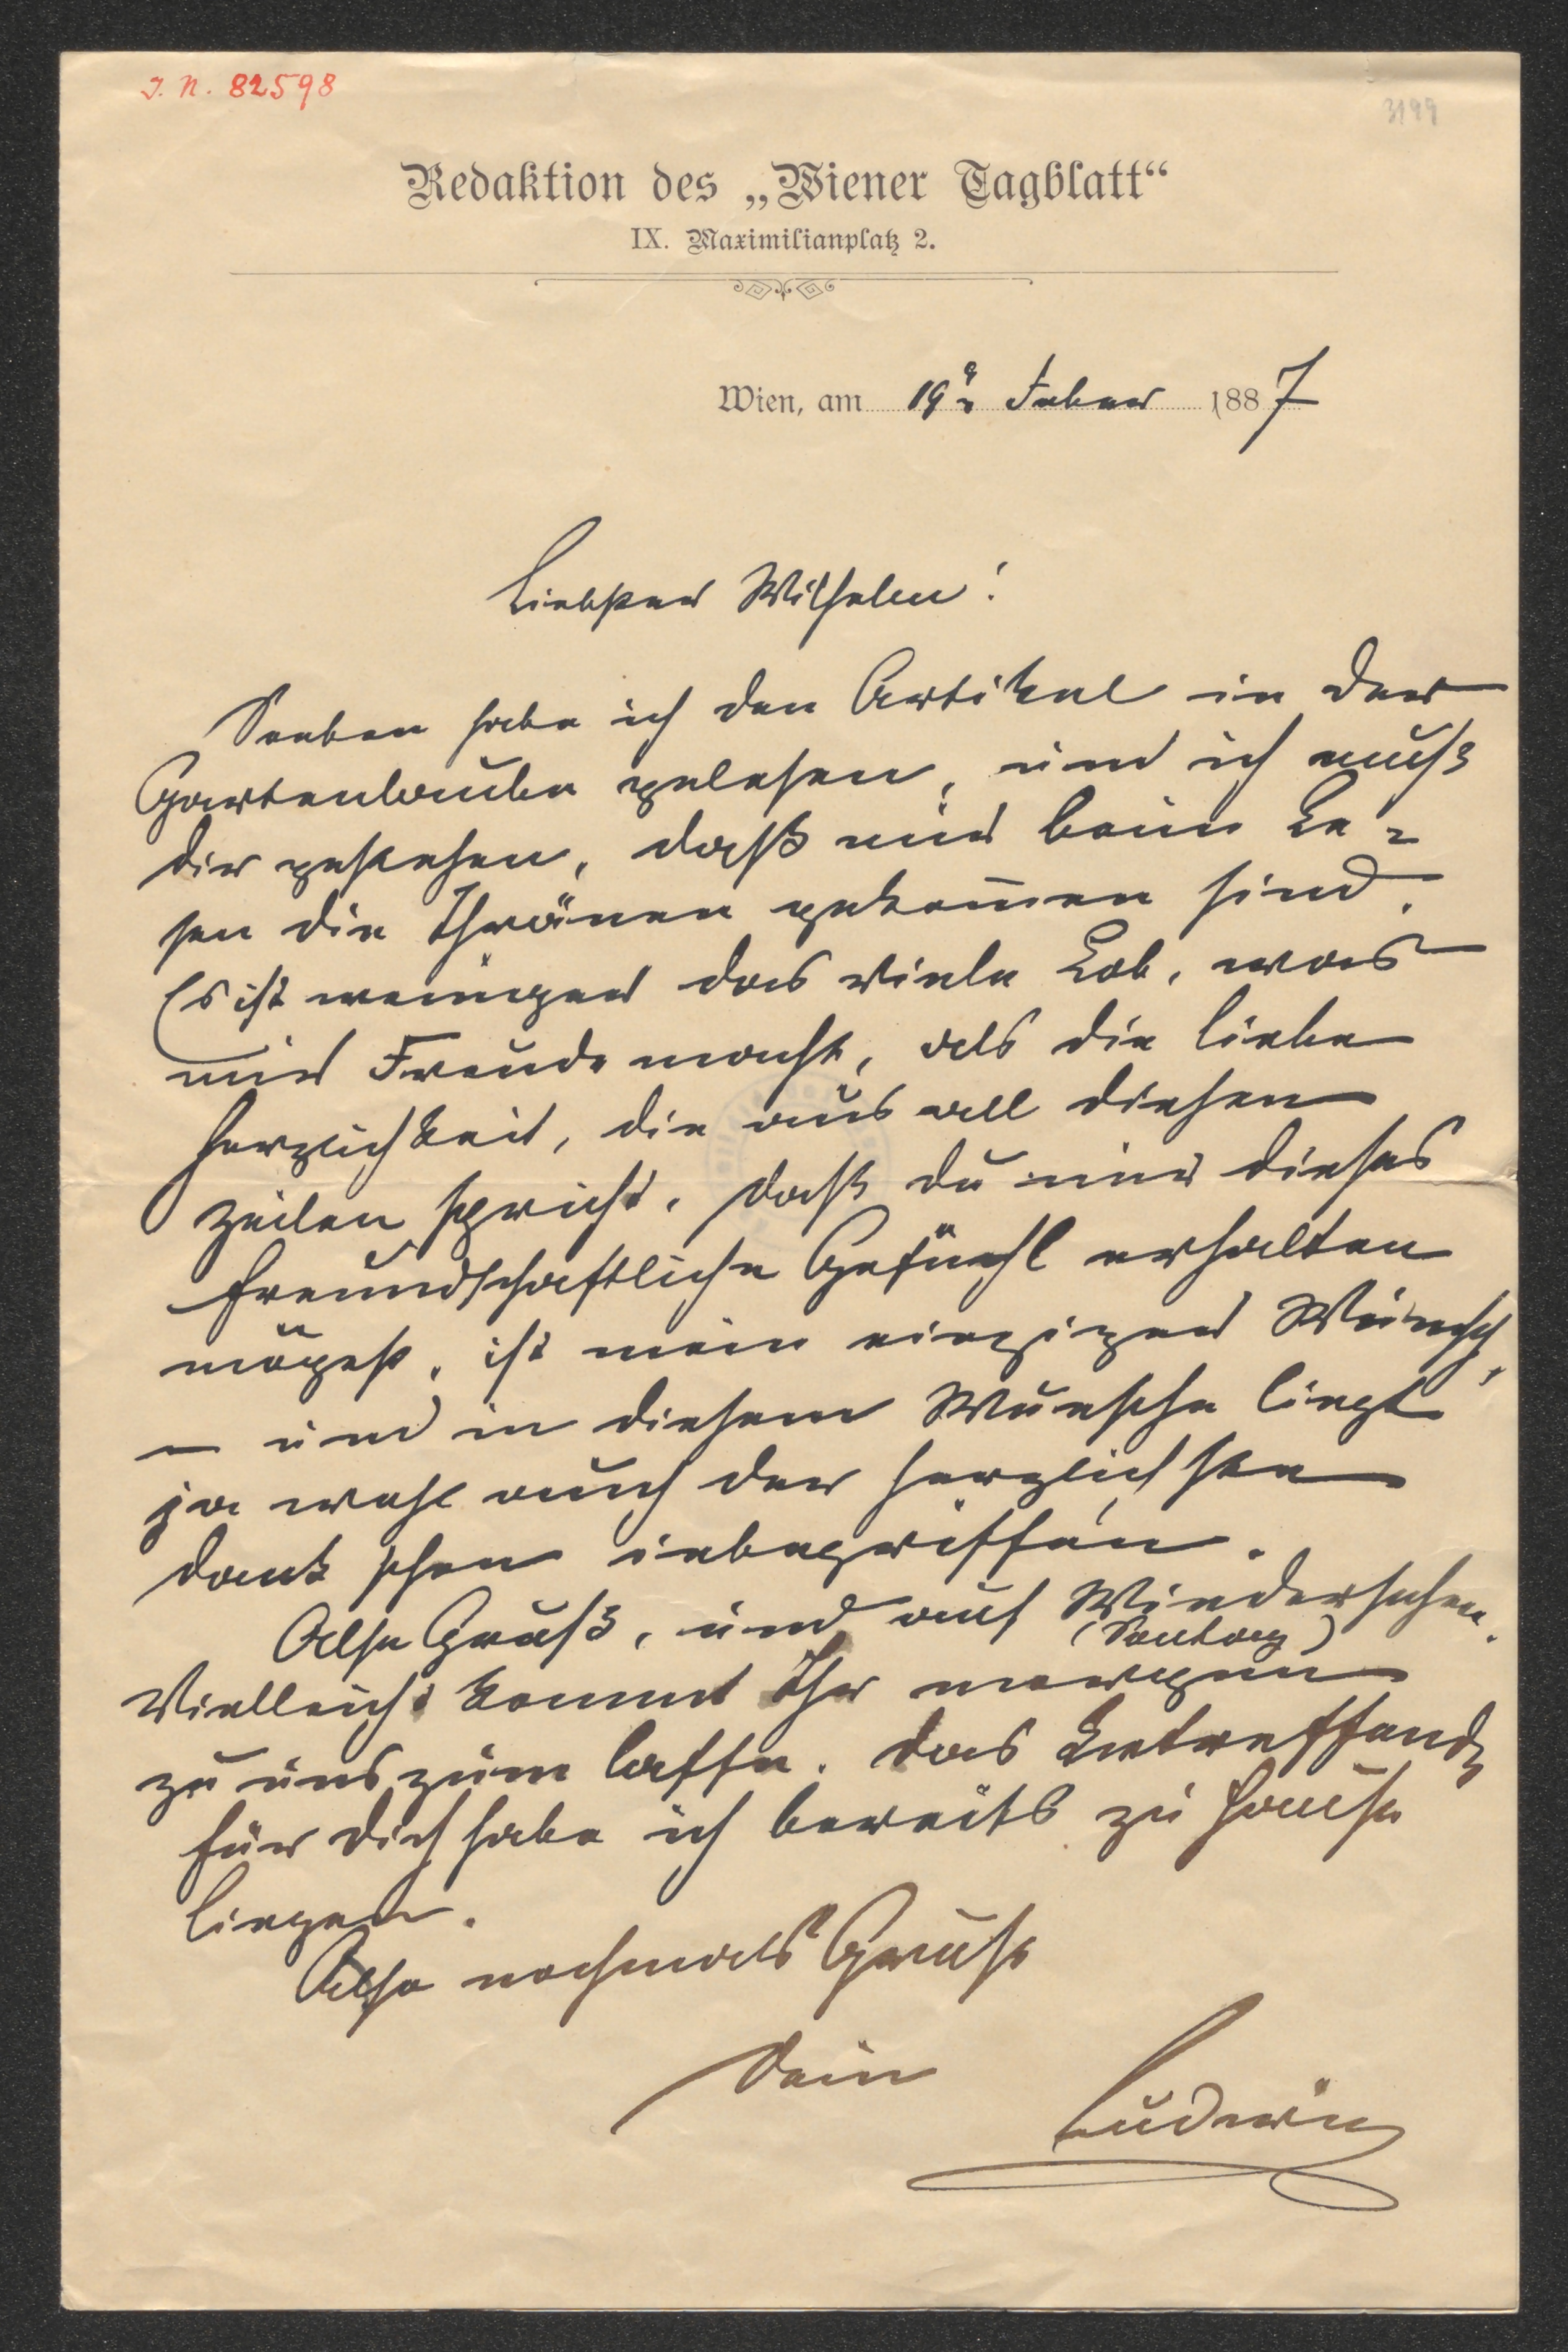 J. N. 82598
3199
Redaktion des „Wiener Tagblatt“
IX. Maximilianplatz 2.
Wien, am 19. Feber 1887
Liebster Wilhelm!
Soeben habe ich den Artikel in der
Gartenlaube gelesen, und ich muß
dir gestehen, daß mir beim Le-
sen die Thränen gekom̅en sind.
Es ist weniger das viele Lob, was
mir Freude macht, als die liebe
Herzlichkeit, die aus all diesen
Zeilen spricht. Daß du mir dieses
freundschaftliche Gefühl erhalten
mögest, ist mein einziger Wunsch,
– und in diesem Wunsche liegt
ja wohl auch der herzlichste
Dank schon inbegriffen.
Also Gruß, und auf Wiedersehen.
(Sontag)
Vielleicht kommt Ihr morgen
zu uns zum Caffe. Das Betreffende
für dich habe ich bereits zu Hause
liegen.
Also nochmals Gruß
Dein
Ludwig